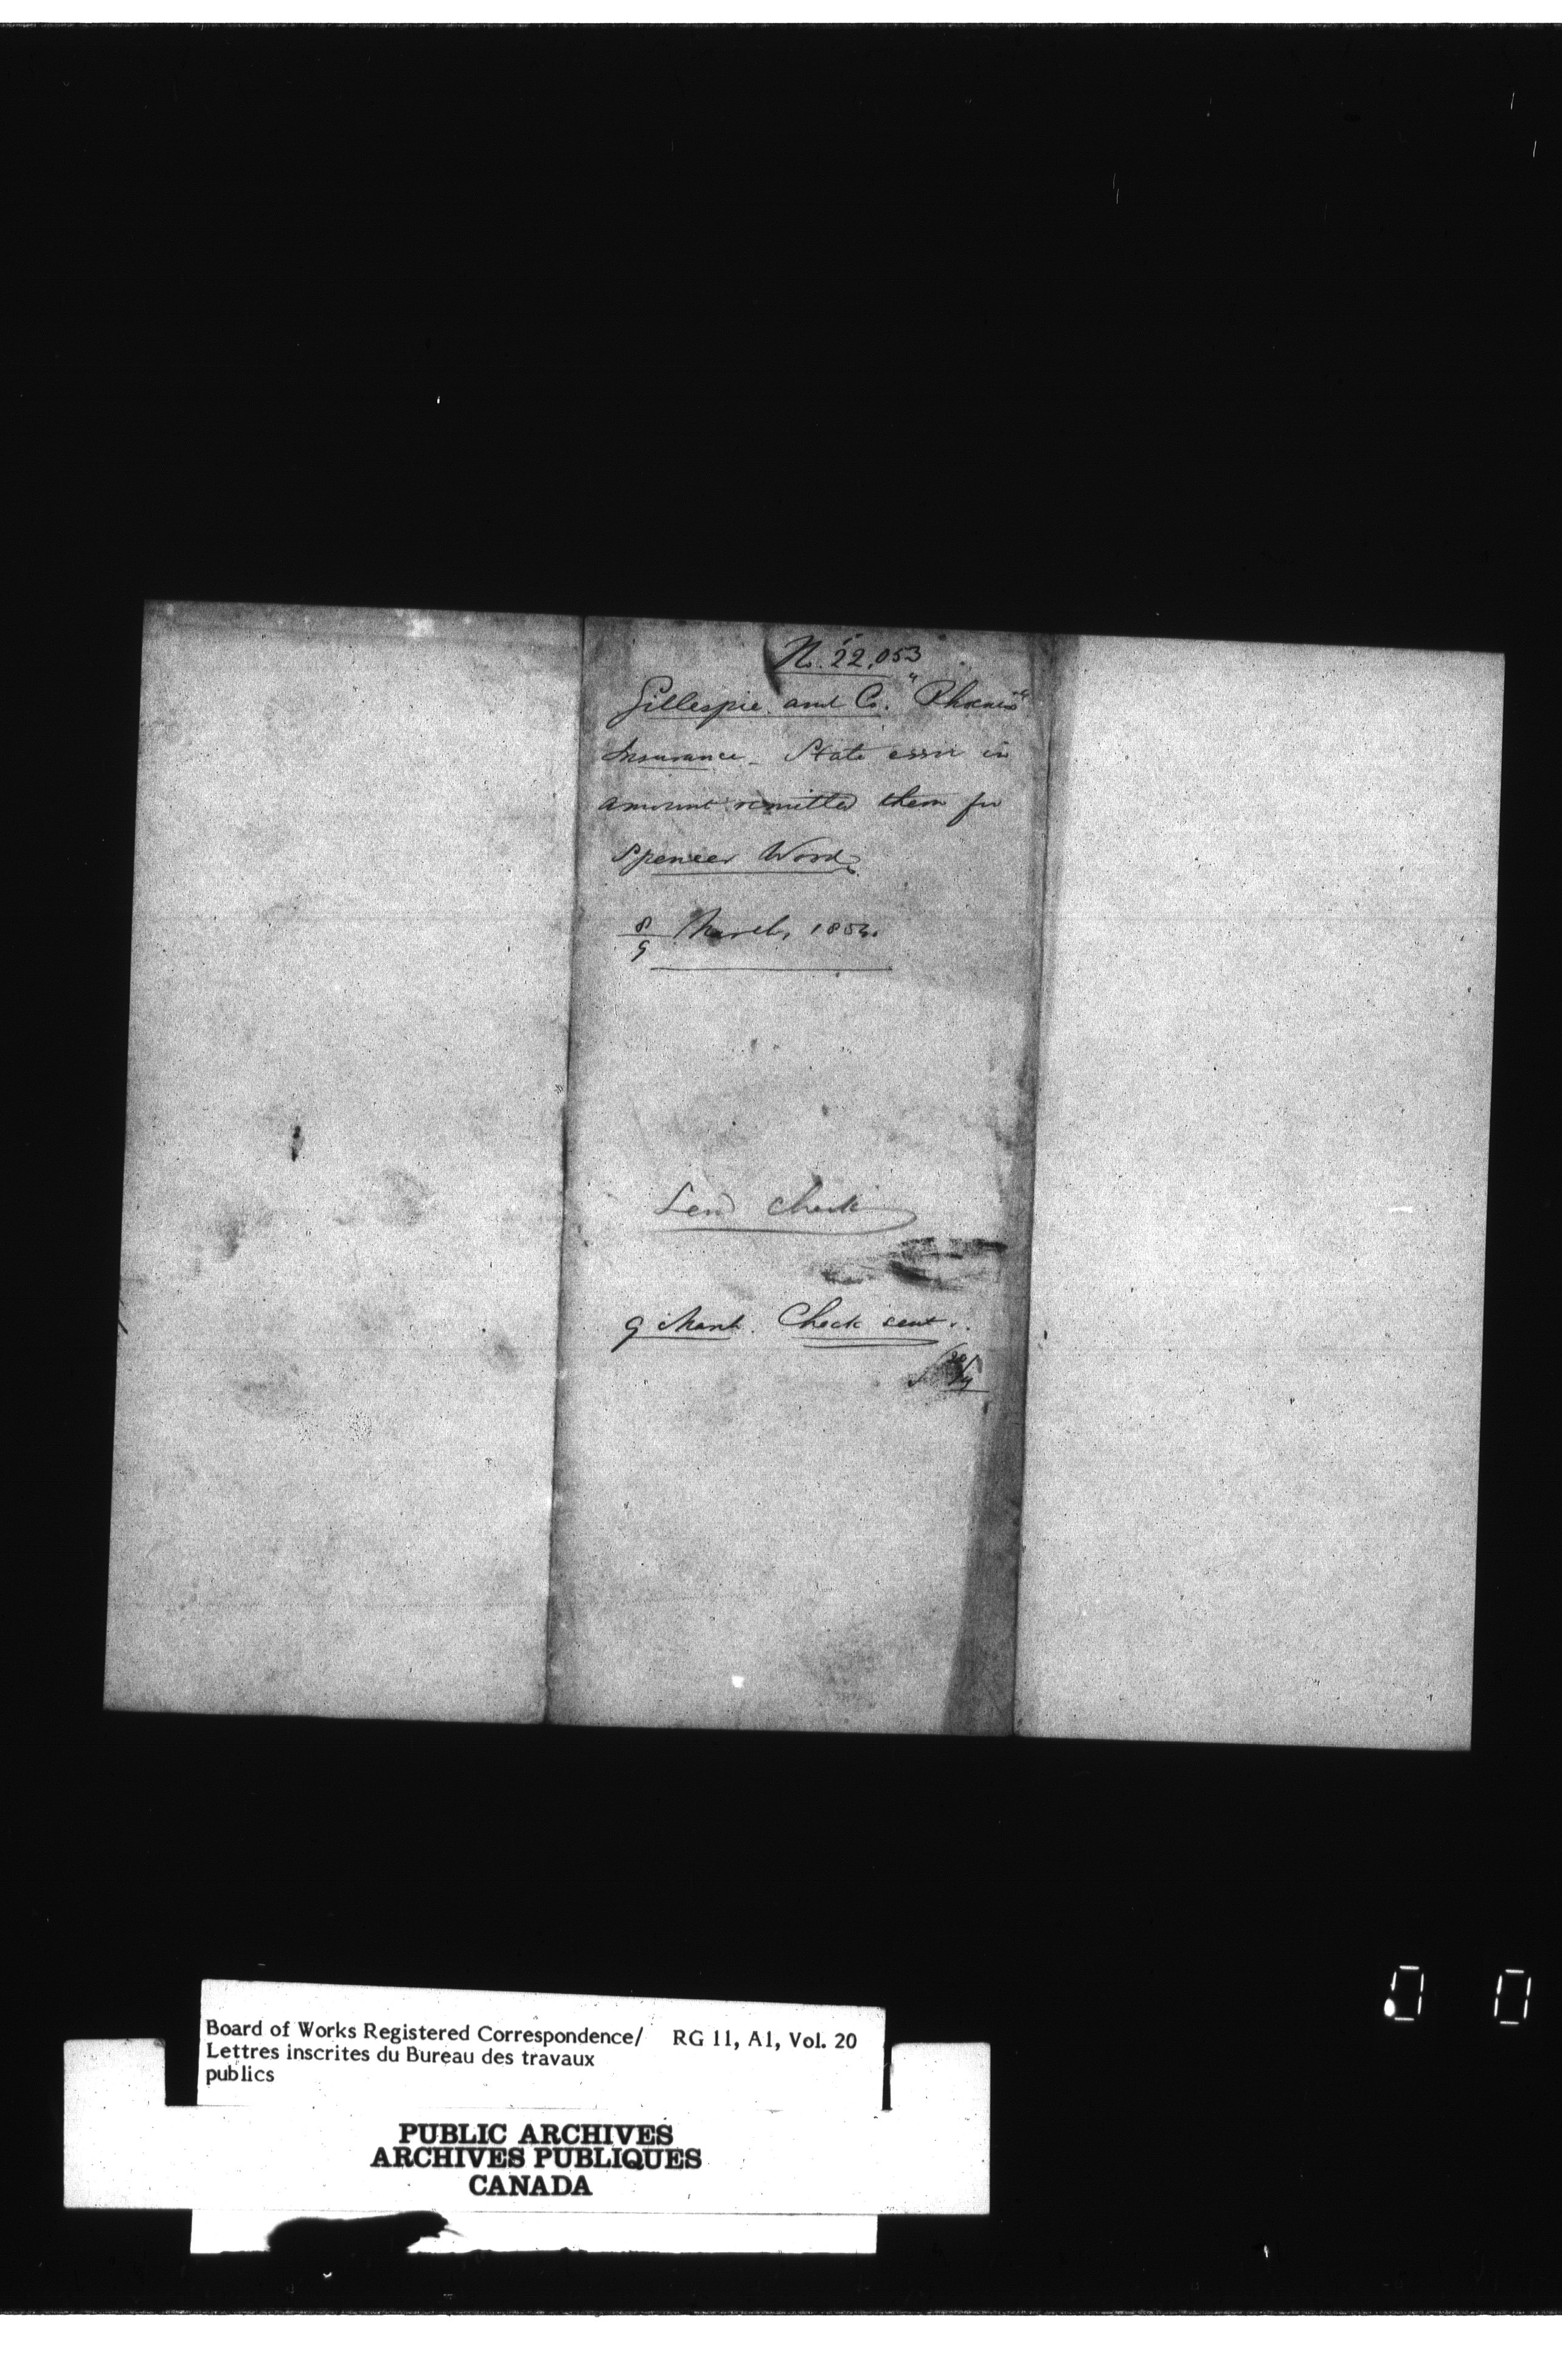 No. 22,053
Gillespie and Co. "Phoenix"
Insurance - State error in
amount remitted them for
Spencer Wood
8/9 March, 1853.
Send check
9 March. Check sent.
Board of Works Registered Correspondence/ RG 11, A1, Vol. 20
Lettres inscrites du Bureau des travaux
publics
PUBLIC ARCHIVES
ARCHIVES PUBLIQUES
CANADA